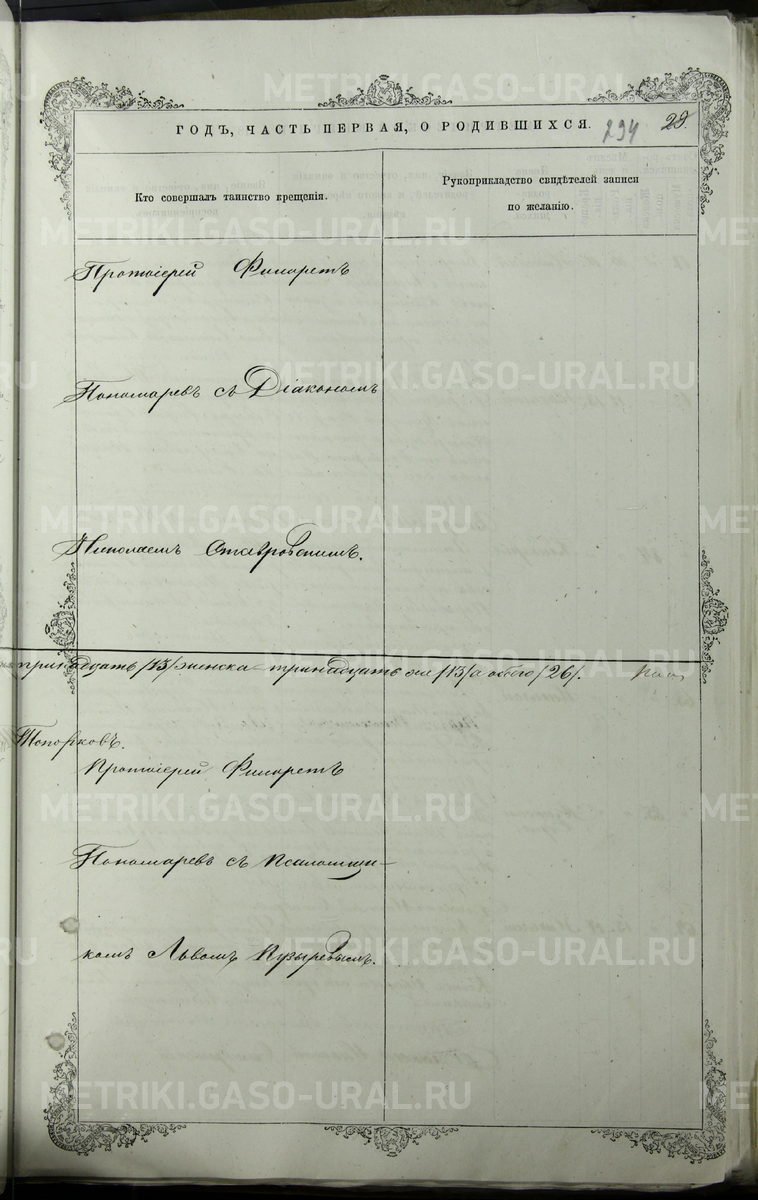 ГОДЪ, ЧАСТЬ ПЕРВАЯ, О РОДИВШИХСЯ. 294 29.
Кто совершалъ таинство крещенія.
Рукоприкладство свидѣтелей записи
по желанію.
Протоіерей Филаретъ
Пономаревъ съ Діакономъ
Николаемъ Ставровскимъ.
тринадцать /13/ женска тринадцать же /13/ а обоего /26/.
Топорковъ.
Протоіерей Филаретъ
Пономаревъ съ Псаломщи-
комъ Львомъ Пузыревымъ.
METRIKI.GASO-URAL.RU